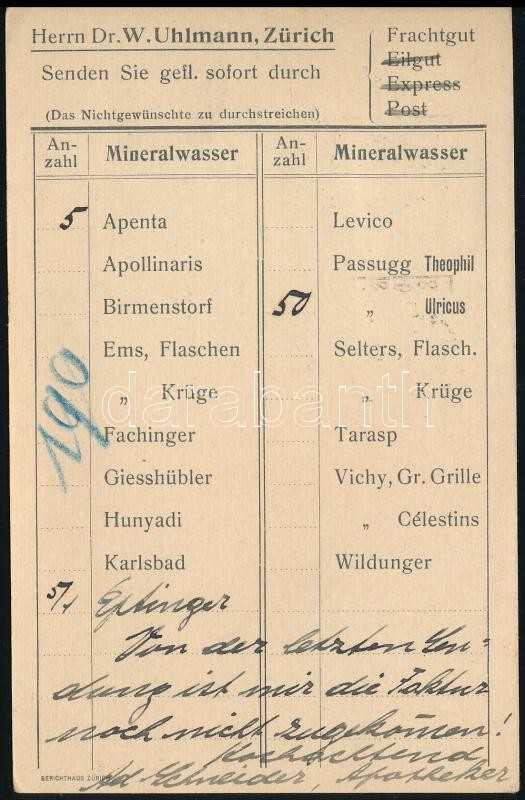 Herrn Dr. W. Uhlmann, Zürich
Senden Sie gefl. sofort durch
(Das Nichtgewünschte zu durchstreichen)
Frachtgut
Eilgut
Express
Post
An-
zahl
Mineralwasser
5 Apenta
Apollinaris
Birmenstorf
Ems, Flaschen
„ Krüge
Fachinger
Giesshübler
Hunyadi
Karlsbad
190
An-
zahl
Mineralwasser
Levico
Passugg Theophil
50 „ Ulricus
Selters, Flasch.
„ Krüge
Tarasp
Vichy, Gr. Grille
„ Célestins
Wildunger
5/1 Eptinger
Von der letzten Sen-
dung ist mir die Faktur
noch nicht zugekom̄en!
Hochachtend
Ad Schneider, Apotheker
BERICHTHAUS ZÜRICH
darabanth